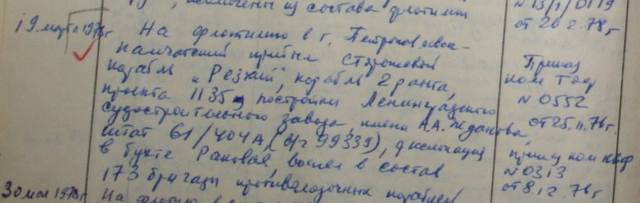 исключены из состава флотилии
N 13/1/0119
от 20.2.78 г
19 марта 1978 г
На флотилию в г. Петропавловск-
камчатский прибыл сторожевой
корабль "Резкий", корабль 2 ранга,
проекта 1135, постройки Ленинградского
судостроительного завода имени А.А. Жданова
штат 61/404А, (в/ч 99339), дислокация
в бухте Раковая, вошел в состав
173 бригады противолодочных кораблей
Приказ
ком ТОФ
N 0552
от 25.11.76 г.
приказ ком КВФ
N 0313
от 8.12.76 г
30 мая 1978 г
На флотилию в